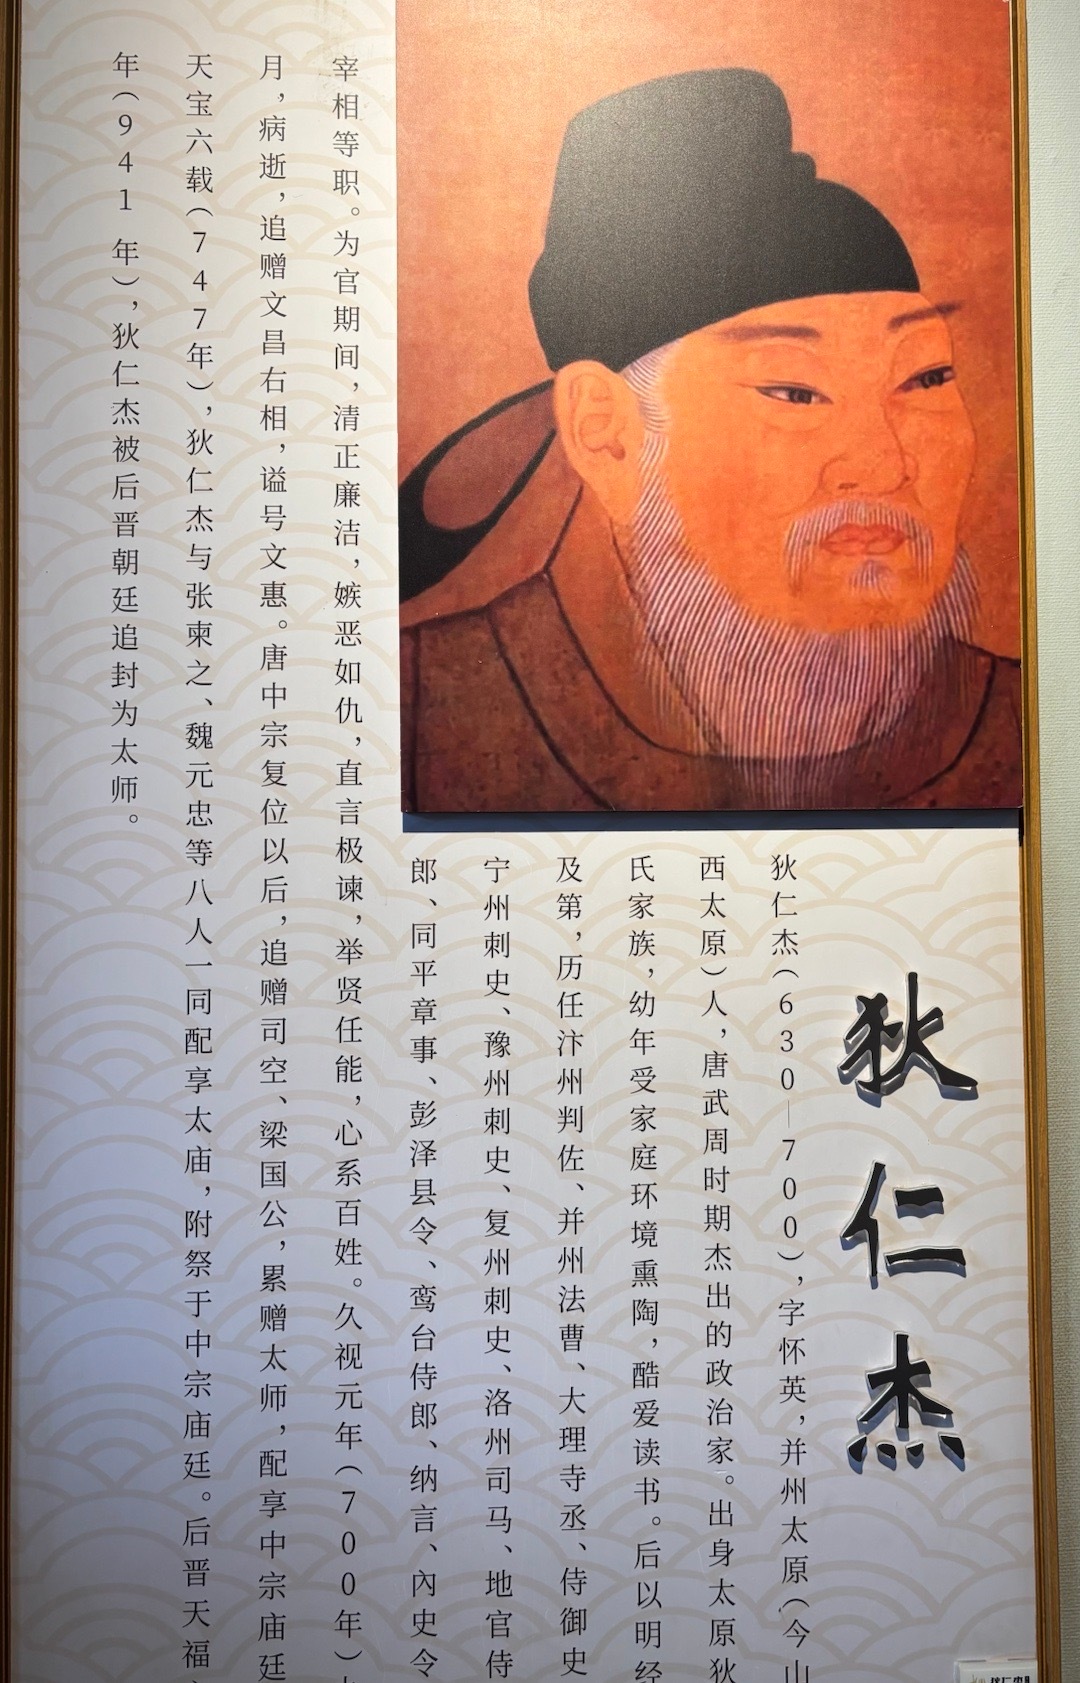 狄仁杰
狄仁杰（630—700），字怀英，并州太原（今山
西太原）人，唐武周时期杰出的政治家。出身太原狄
氏家族，幼年受家庭环境熏陶，酷爱读书。后以明经
及第，历任汴州判佐、并州法曹、大理寺丞、侍御史
宁州刺史、豫州刺史、复州刺史、洛州司马、地官侍
郎、同平章事、彭泽县令、鸾台侍郎、纳言、内史令
宰相等职。为官期间，清正廉洁，嫉恶如仇，直言极谏，举贤任能，心系百姓。久视元年（700年）
月，病逝，追赠文昌右相，谥号文惠。唐中宗复位以后，追赠司空、梁国公，累赠太师，配享中宗庙廷
天宝六载（747年），狄仁杰与张柬之、魏元忠等八人一同配享太庙，附祭于中宗庙廷。后晋天福
年（941年），狄仁杰被后晋朝廷追封为太师。